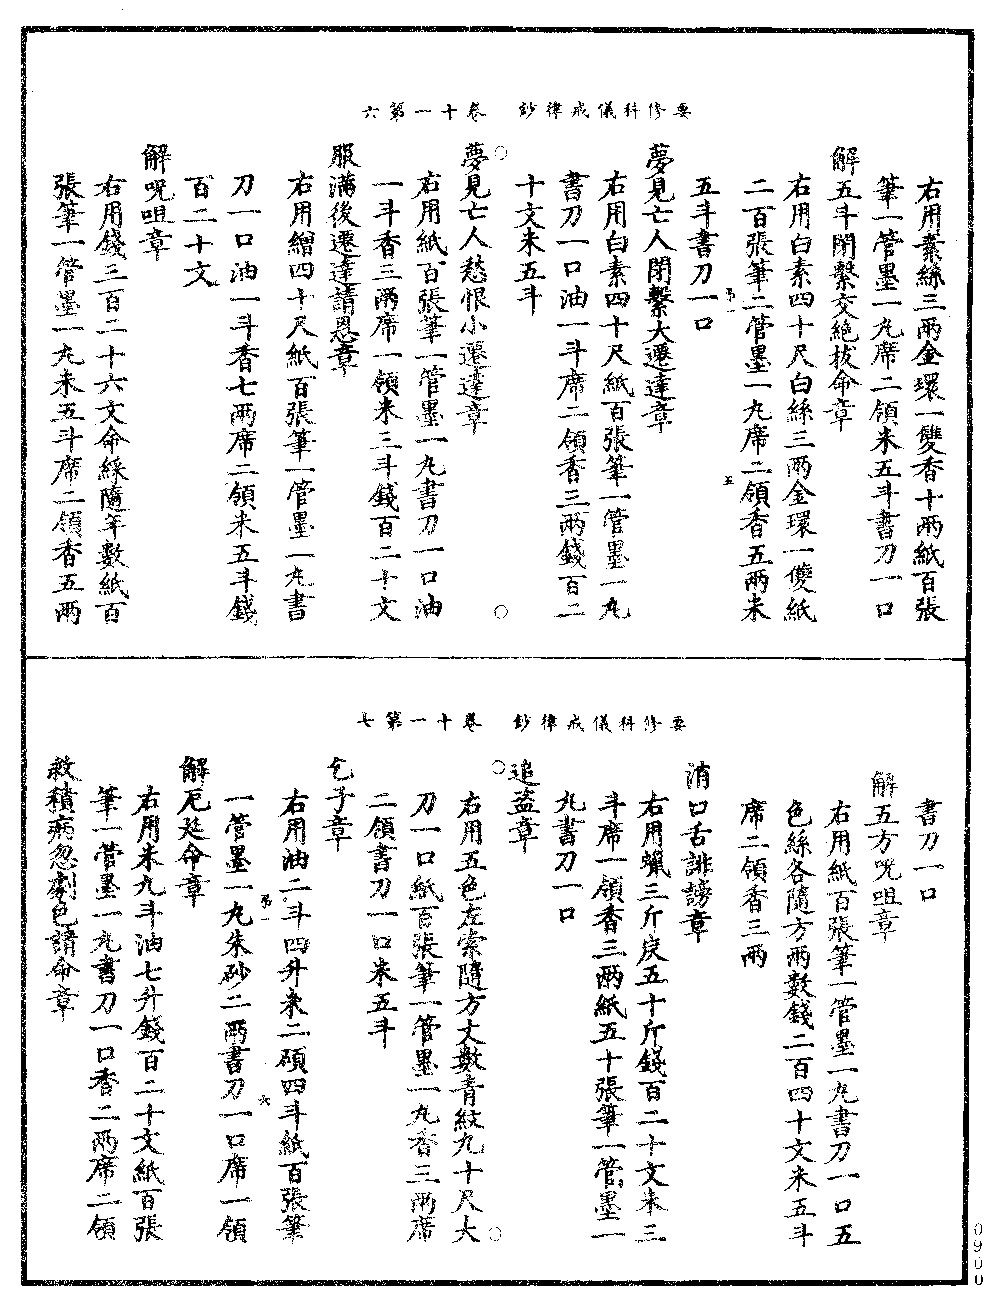 要修科儀戒律鈔　卷十一第六
右用素絲三兩金環一雙香十兩紙百張
筆一管墨一丸席二領米五斗書刀一口
解五斗閉繫交絶拔命章
右用白素四十尺白絲三兩金環一雙紙
二百張筆二管墨一丸席二領香五兩米
五斗書刀一口
夢見亡人閉繫大遷達章
右用白素四十尺紙百張筆一管墨一丸
書刀一口油一斗席二領香三兩錢百二
十文米五斗
夢見亡人愁恨小遷達章
右用紙百張筆一管墨一丸書刀一口油
一斗香三兩席一領米三斗錢百二十文
服滿後遷達請恩章
右用繒四十尺紙百張筆一管墨一丸書
刀一口油一斗香七兩席二領米五斗錢
百二十文
解呪咀章
右用錢三百二十六文命綵隨年數紙百
張筆一管墨一丸米五斗席二領香五兩
要修科儀戒律鈔　卷十一第七
書刀一口
解五方呪咀章
右用紙百張筆一管墨一丸書刀一口五
色絲各隨方兩數錢二百四十文米五斗
席二領香三兩
消口舌誹謗章
右用蠟三斤炭五十斤錢百二十文米三
斗席一領香三兩紙五十張筆一管墨一
丸書刀一口
追盜章
右用五色左索隨方丈數青紋九十尺大
刀一口紙百張筆一管墨一丸香三兩席
二領書刀一口米五斗
乞子章
右用油二斗四升米二碩四斗紙百張筆
一管墨一丸朱砂二兩書刀一口席一領
解厄延命章
右用米九斗油七升錢百二十文紙百張
筆一管墨一丸書刀一口香二兩席二領
救積病忽劇色請命章
0900